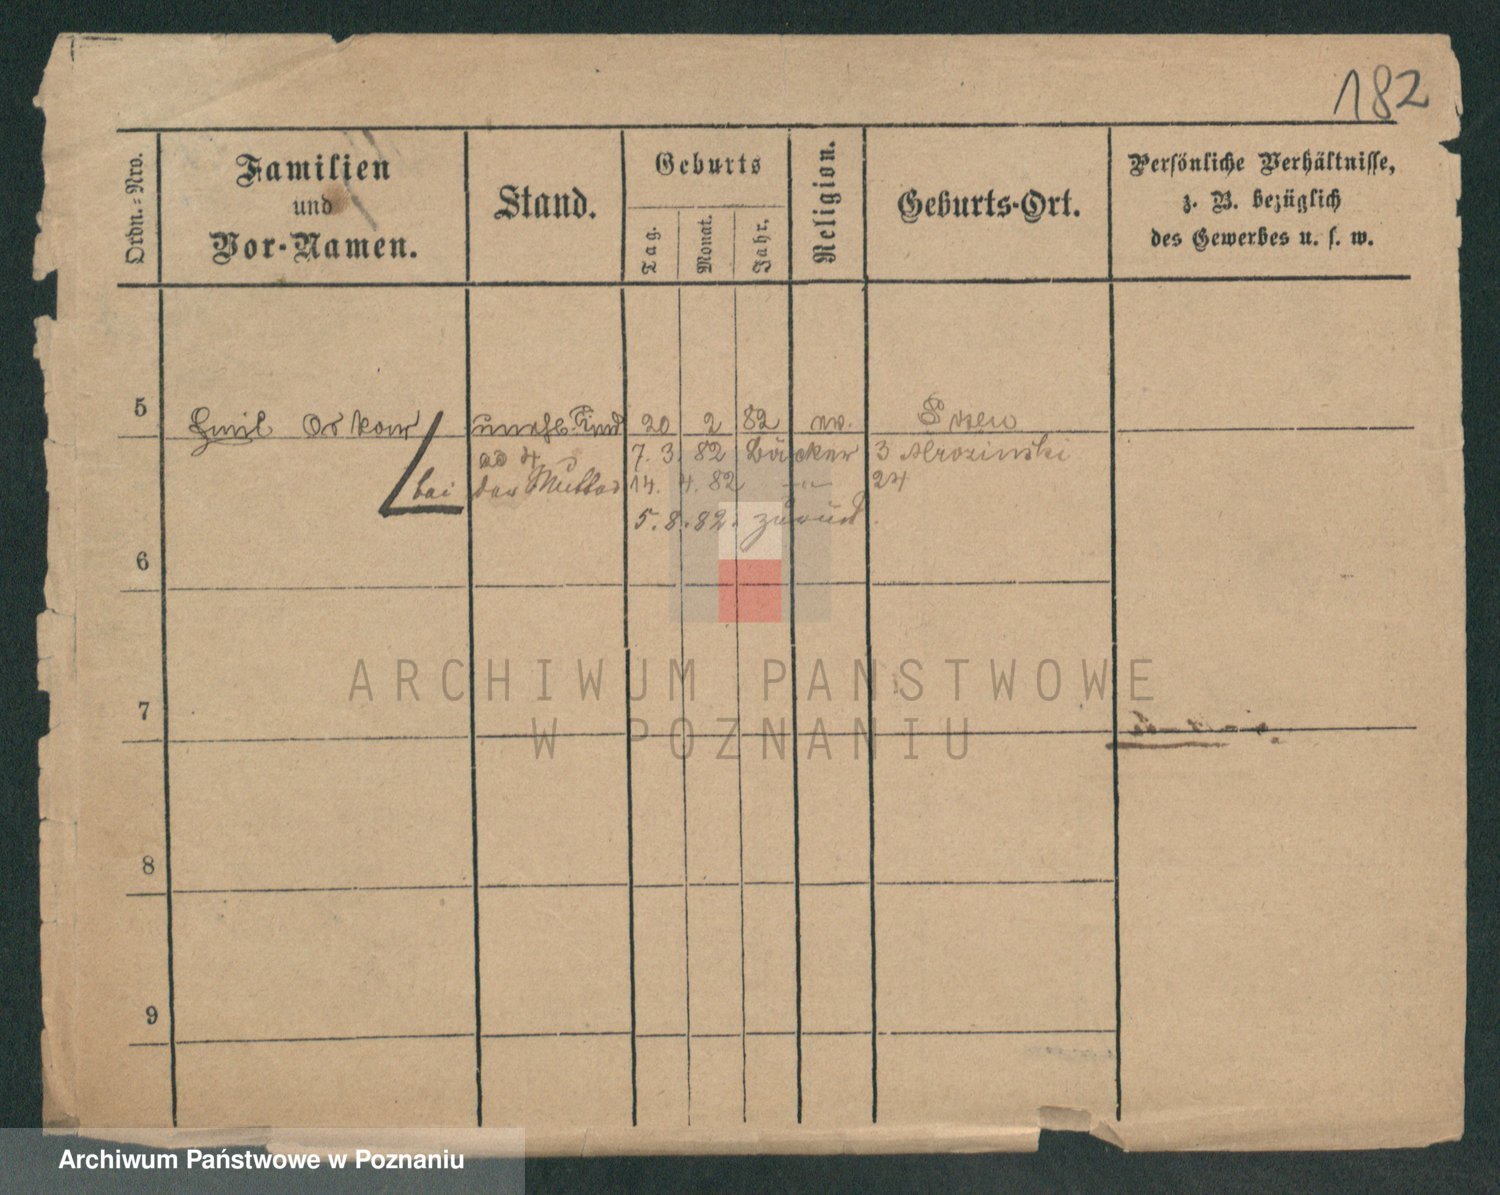 182
Ordn.-Nro.
Familien
und
Vor-Namen.
Stand.
Geburts
Tag.
Monat.
Jahr.
Religion.
Geburts-Ort.
Persönliche Verhältnisse,
z. B. bezüglich
des Gewerbes u. s. w.
5 Emil unehl. Kind 20 2 82 ev. Posen
ad 4 7. 3. 82 Bäcker 3
bei der Mutter 14. 4. 82 24
5. 8. 82. zurück.
6
7
8
9
ARCHIWUM PAŃSTWOWE
W POZNANIU
Archiwum Państwowe w Poznaniu